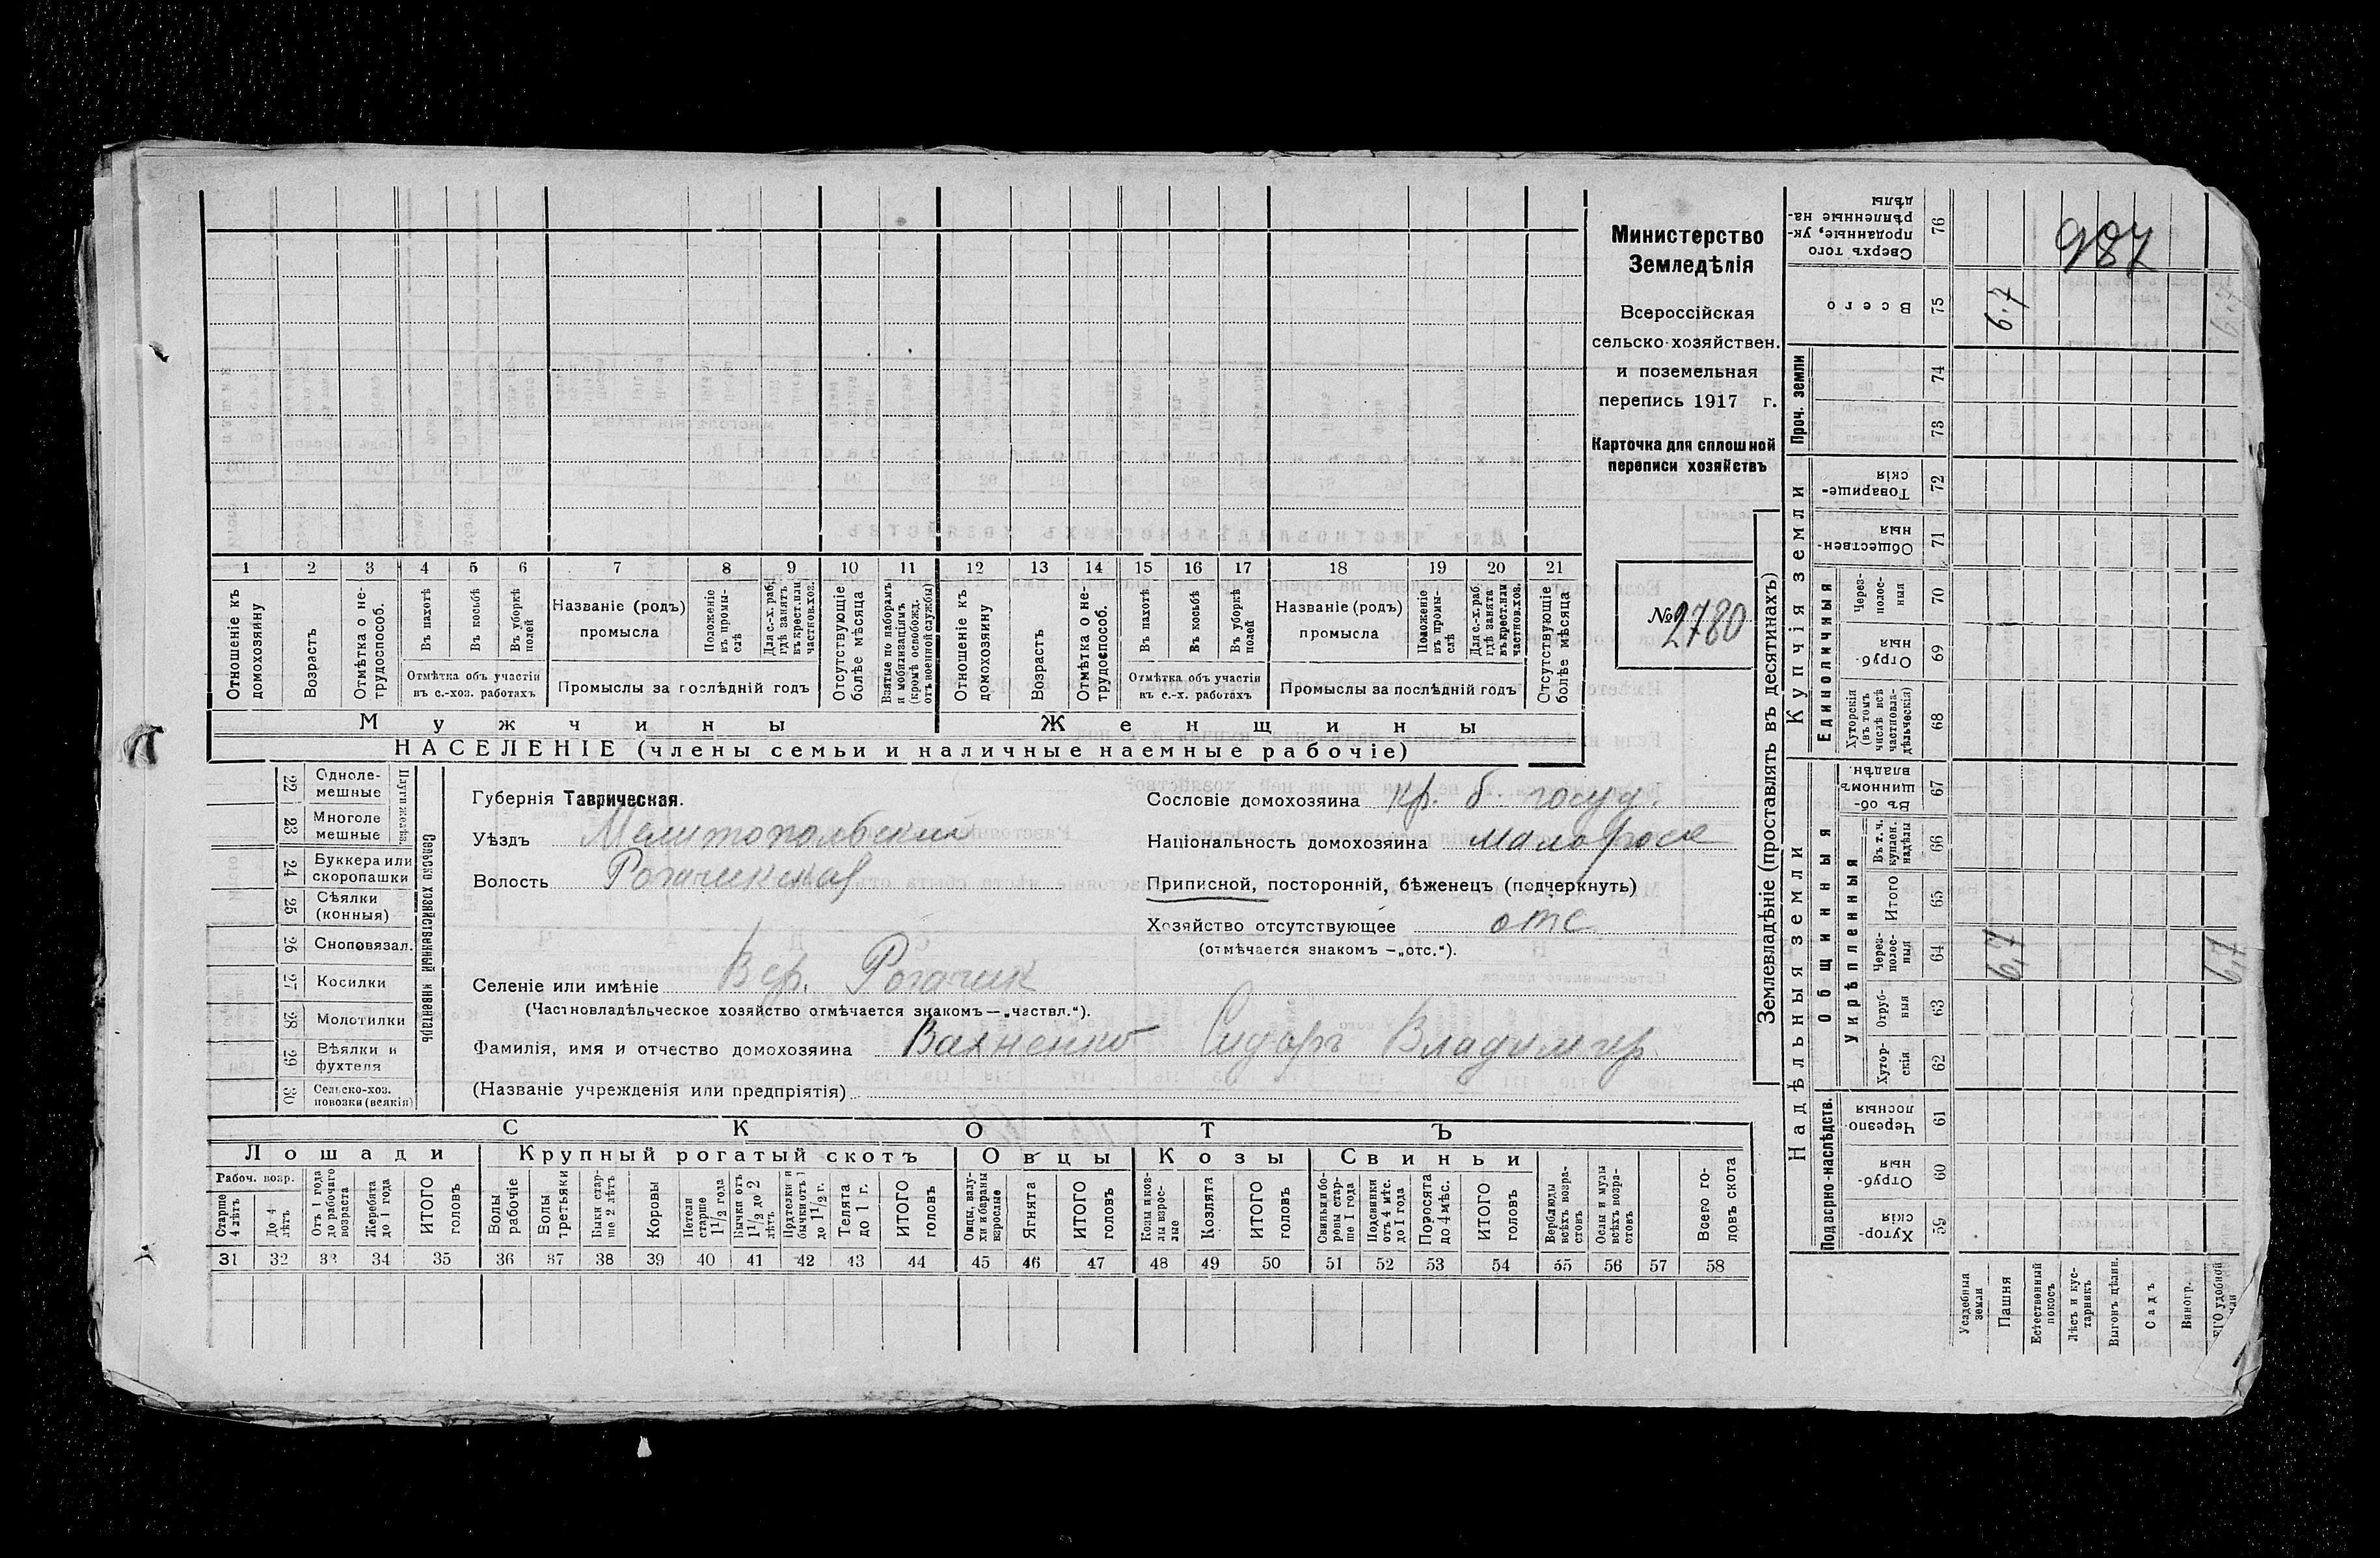 Министерство
Земледѣлія
Всероссійская
сельско-хозяйствен.
и поземельная
перепись 1917 г.
Карточка для сплошной
переписи хозяйствъ
№ 2780
987
1 2 3 4 5 6 7 8 9 10 11 12 13 14 15 16 17 18 19 20 21
Отношеніе къ домохозяину
Возрастъ
Отмѣтка о нетрудоспособ.
Въ пахотѣ
Въ косьбѣ
Въ уборкѣ полей
Отмѣтка объ участіи
въ с.-хоз. работахъ
Названіе (родъ)
промысла
Положеніе въ промыслѣ
Для с.-х. раб. гдѣ занятъ въ крест. или частнов. хоз.
Промыслы за послѣдній годъ
Отсутствующіе болѣе мѣсяца
Взятые по наборамъ и мобилизаціямъ (кромѣ освобожд. отъ военной службы)
Отношеніе къ домохозяину
Возрастъ
Отмѣтка о нетрудоспособ.
Въ пахотѣ
Въ косьбѣ
Въ уборкѣ полей
Отмѣтка объ участіи
въ с.-х. работахъ
Названіе (родъ)
промысла
Положеніе въ промыслѣ
Для с.-х. раб. гдѣ занята въ крест. или частнов. хоз.
Промыслы за послѣдній годъ
Отсутствующіе болѣе мѣсяца
Мужчины Женщины
НАСЕЛЕНІЕ (члены семьи и наличные наемные рабочіе)
Сельско хозяйственный инвентарь
Плуги желѣз.
22 Одноле-
мешные
23 Многоле
мешные
24 Буккера или
скоропашки
25 Сѣялки
(конныя)
26 Сноповязал.
27 Косилки
28 Молотилки
29 Вѣялки и
фухтеля
30 Сельско-хоз.
повозки (всякія)
Губернія Таврическая.
Уѣздъ Мелитопольскій
Волость Рогачикская
Селеніе или имѣніе Вер. Рогачик
(Частновладѣльческое хозяйство отмѣчается знакомъ—„частвл.“).
Фамилія, имя и отчество домохозяина Вахненко Сидоръ Владимир.
(Названіе учрежденія или предпріятія)
Сословіе домохозяина кр. б. госуд.
Національность домохозяина малоросс
Приписной, посторонній, бѣженецъ (подчеркнуть)
Хозяйство отсутствующее отс
(отмѣчается знакомъ —„отс.“).
СКОТЪ
Лошади Крупный рогатый скотъ Овцы Козы Свиньи
Рабоч. возр.
Старше 4 лѣтъ
До 4 лѣтъ
Отъ 1 года до рабочаго возраста
Жеребята до 1 года
ИТОГО головъ
Волы рабочіе
Волы третьяки
Быки старше 2 лѣтъ
Коровы
Нетели старше 1½ года
Бычки отъ 1½ до 2 лѣтъ
Подтелки и бычки отъ 1 до 1½ г.
Телята до 1 г.
ИТОГО головъ
Овцы, валухи и бараны взрослые
Ягнята
ИТОГО головъ
Козы и козлы взрослые
Козлята
ИТОГО головъ
Свиньи и боровы старше 1 года
Подсвинки отъ 4 мѣс. до 1 года
Поросята до 4 мѣс.
ИТОГО головъ
Верблюды всѣхъ возрастовъ
Ослы и мулы всѣхъ возрастовъ
Всего головъ скота
31 32 33 34 35 36 37 38 39 40 41 42 43 44 45 46 47 48 49 50 51 52 53 54 55 56 57 58
Землевладѣніе (проставлять въ десятинахъ)
Надѣльныя земли
Купчія земли
Проч. земли
Подворно-наслѣдств.
Общинныя
Укрѣпленныя
Единоличныя
Сверхъ того проданные, укрѣпленные надѣлы 76
Всего 75 6.7 6.7
74
73
Товарищескія 72
Общественныя 71
Черезполосныя 70
Отрубныя 69
Хуторскія (въ томъ числѣ всѣ частновладѣльческія) 68
Въ общинномъ владѣн. 67
Въ т. ч. куплен. надѣлы 66
Итого 65
Черезполосныя 64 6,7 6,7
Отрубныя 63
Хуторскія 62
Черезполосныя 61
Отрубныя 60
Хуторскія 59
Усадебныя земли
Пашня
Естественный покосъ
Лѣсъ и кустарникъ
Выгонъ цѣлин.
Садъ
Виногр.